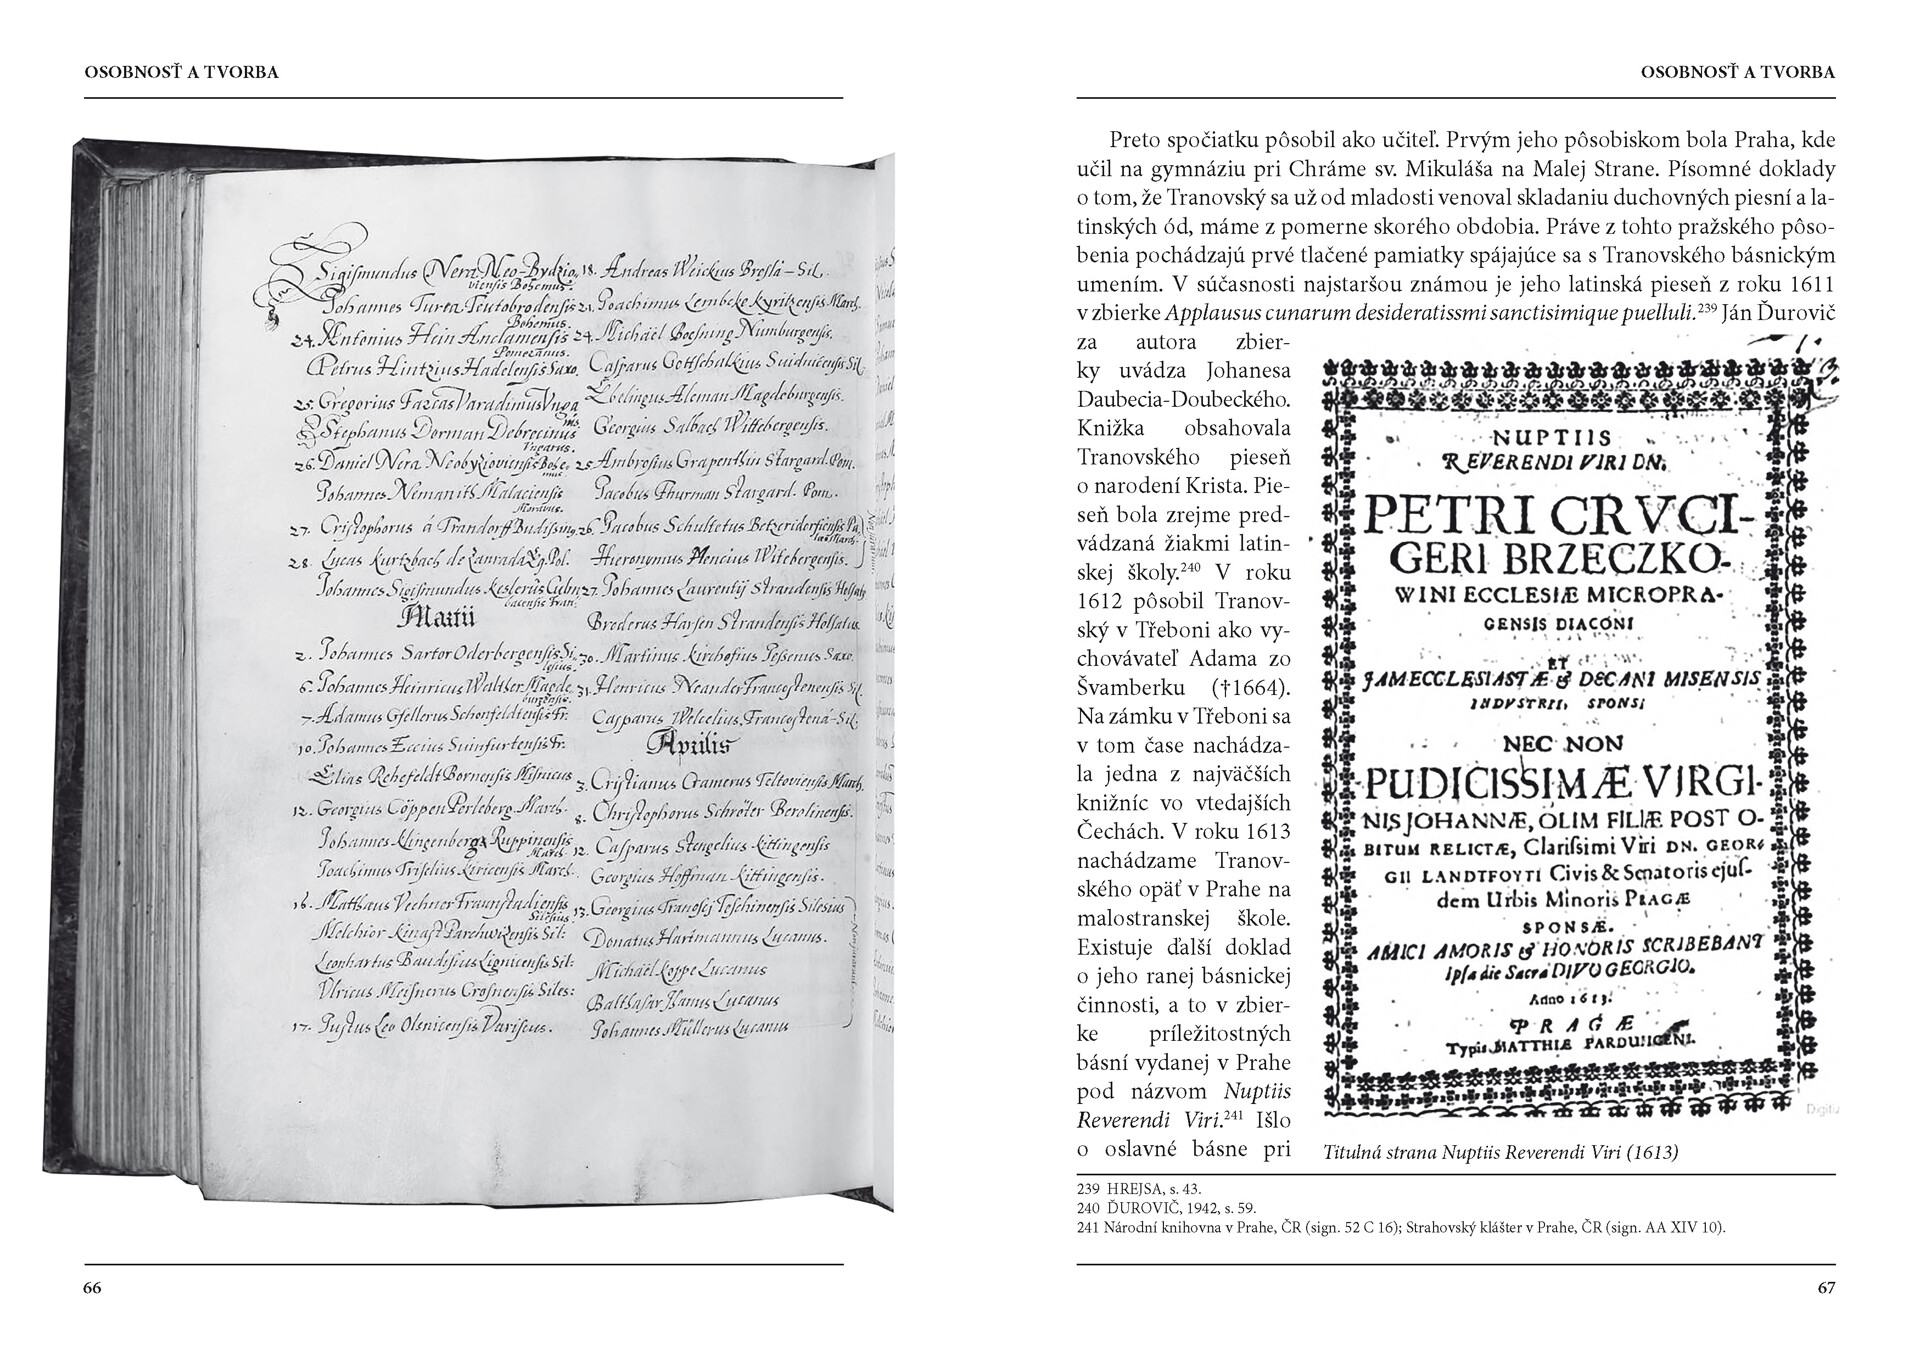 OSOBNOSŤ A TVORBA
Sigismundus Nera Neo-Bydzio
viensis Bohemus.
Johannes Turea Teutobrodensis
Bohemus.
24. Antonius Hein Anclamensis
Pomeranus.
Petrus Hintzius Hadelensis Saxo.
25. Gregorius Varadinus Unga
Stephanus Dorman Debrecinus
Ungarus.
26. Daniel Nera Bohe
mus
Johannes Malaciensis
Moravus.
27. Cristophorus á
28. Lucas Kurtzbach de Pol.
Johannes Sigismundus
Martii
2. Johannes Sartor Oderbergensis Si
lesius.
6. Johannes Heinricus Walther Magde
burgensis.
7. Adamus Gsellerus Fr.
10. Johannes Eccius Suinfurtensis Fr.
Elias Rehefeldt Bornensis Misnicus
12. Georgius Cöppen Perleberg. March.
Johannes Klingenberg Ruppinensis
March.
Joachimus March.
16. Matthæus Vechner Fraunstadiensis
Silesius
Melchior Sil:
Leonhartus Baudisius Lignicensis Sil:
Ulricus Meisnerus Crosnensis Siles:
17. Justus Leo Olsnicensis Variscus.
18. Andreas Weickius Sil.
21. Joachimus Lembcke Kyritzensis March.
24. Michäel Boesning Numburgensis.
Casparus Gottschalkius Suidnicensis Sil.
Ebelingus Aleman Magdeburgensis.
Georgius Salbach Wittebergensis.
25. Ambrosius Grapenthin Stargard. Pom.
Jacobus Thurman Stargard. Pom.
26. Jacobus Schultetus
Hieronymus Mencius Witebergensis.
27. Johannes Laurentij Strandensis
Brederus Harsen Strandensis Holsatus
30. Martinus Kirchofius Saxo.
31. Henricus Neander Sil.
Casparus Sil:
Aprilis
3. Cristianus Cramerus Teltoviensis March.
8. Christophorus Schröter Berolinensis.
12. Casparus Stengelius Kittingensis
Georgius Hoffman Kittingensis.
13. Georgius Teschinensis Silesius
Donatus Hartmannus Lucanus.
Michäel Koppe Lucanus
Balthasar Hanus Lucanus
Johannes Müllerus Lucanus
66
OSOBNOSŤ A TVORBA
Preto spočiatku pôsobil ako učiteľ. Prvým jeho pôsobiskom bola Praha, kde
učil na gymnáziu pri Chráme sv. Mikuláša na Malej Strane. Písomné doklady
o tom, že Tranovský sa už od mladosti venoval skladaniu duchovných piesní a la-
tinských ód, máme z pomerne skorého obdobia. Práve z tohto pražského pôso-
benia pochádzajú prvé tlačené pamiatky spájajúce sa s Tranovského básnickým
umením. V súčasnosti najstaršou známou je jeho latinská pieseň z roku 1611
v zbierke Applausus cunarum desideratissmi sanctisimique puelluli.239 Ján Ďurovič
za autora zbier-
ky uvádza Johanesa
Daubecia-Doubeckého.
Knižka obsahovala
Tranovského pieseň
o narodení Krista. Pie-
seň bola zrejme pred-
vádzaná žiakmi latin-
skej školy.240 V roku
1612 pôsobil Tranov-
ský v Třeboni ako vy-
chovávateľ Adama zo
Švamberku (†1664).
Na zámku v Třeboni sa
v tom čase nachádza-
la jedna z najväčších
knižníc vo vtedajších
Čechách. V roku 1613
nachádzame Tranov-
ského opäť v Prahe na
malostranskej škole.
Existuje ďalší doklad
o jeho ranej básnickej
činnosti, a to v zbier-
ke príležitostných
básní vydanej v Prahe
pod názvom Nuptiis
Reverendi Viri.241 Išlo
o oslavné básne pri
NUPTIIS
REVERENDI VIRI DN.
PETRI CRVCI-
GERI BRZECZKO-
WINI ECCLESIÆ MICROPRA-
GENSIS DIACONI
ET
JAM ECCLESIASTÆ & DECANI MISENSIS
INDVSTRII, SPONSI
NEC NON
PUDICISSIMÆ VIRGI-
NIS JOHANNÆ, OLIM FILIÆ POST O-
BITUM RELICTÆ, Clarissimi Viri DN. GEOR-
GII LANDTFOYTI Civis & Senatoris ejus-
dem Urbis Minoris PRAGÆ
SPONSÆ.
AMICI AMORIS & HONORIS SCRIBEBANT
Ipsa die Sacra DIVO GEORGIO.
Anno 1613.
PRAGÆ
Typis MATTHIÆ PARDUBICENI.
Titulná strana Nuptiis Reverendi Viri (1613)
239 HREJSA, s. 43.
240 ĎUROVIČ, 1942, s. 59.
241 Národní knihovna v Prahe, ČR (sign. 52 C 16); Strahovský klášter v Prahe, ČR (sign. AA XIV 10).
67